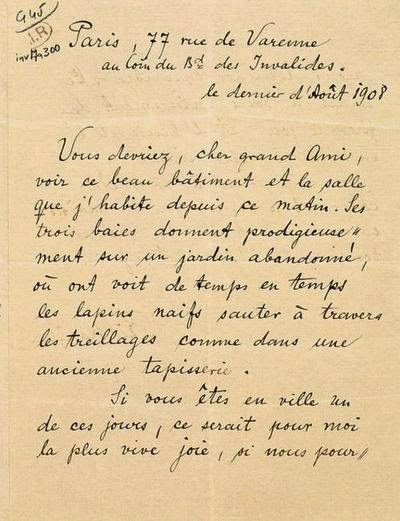 G45
J.R
inv 17a300
Paris, 77 rue de Varenne
au Coin du Bd des Invalides.
le dernier d'Août 1908
Vous devriez, cher grand Ami,
voir ce beau bâtiment et la salle
que j'habite depuis ce matin. Ses
trois baies donnent prodigieuse=
ment sur un jardin abandonné,
où ont voit de temps en temps
les lapins naifs sauter à travers
les treillages comme dans une
ancienne tapisserie.
Si vous êtes en ville un
de ces jours, ce serait pour moi
la plus vive joie, si nous pour=